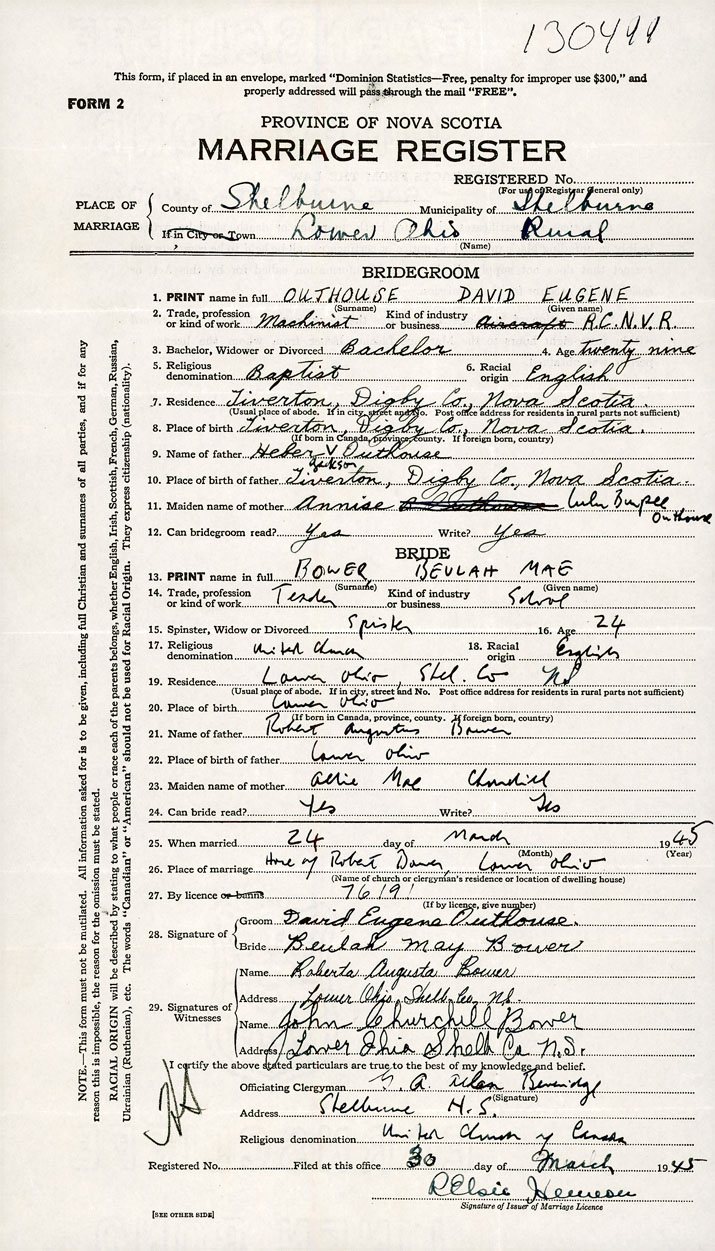 130499
This form, if placed in an envelope, marked "Dominion Statistics—Free, penalty for improper use $300," and
properly addressed will pass through the mail "FREE".
FORM 2
PROVINCE OF NOVA SCOTIA
MARRIAGE REGISTER
REGISTERED No.
(For use of Registrar General only)
PLACE OF MARRIAGE
County of Shelburne Municipality of Shelburne
If in City or Town Lower Ohio Rural
(Name)
BRIDEGROOM
1. PRINT name in full OUTHOUSE DAVID EUGENE
(Surname) (Given name)
2. Trade, profession or kind of work Machinist Kind of industry or business Aircraft R.C.N.V.R.
3. Bachelor, Widower or Divorced Bachelor 4. Age twenty nine
5. Religious denomination Baptist 6. Racial origin English
7. Residence Tiverton, Digby Co., Nova Scotia.
(Usual place of abode. If in city, street and No. Post office address for residents in rural parts not sufficient)
8. Place of birth Tiverton, Digby Co., Nova Scotia.
(If born in Canada, province, county. If foreign born, country)
9. Name of father Heber V Outhouse
Jackson
10. Place of birth of father Tiverton, Digby Co., Nova Scotia.
11. Maiden name of mother Annise Outhouse
12. Can bridegroom read? Yes Write? Yes
BRIDE
13. PRINT name in full BOWER, BEULAH MAE
(Surname) (Given name)
14. Trade, profession or kind of work Kind of industry or business School
15. Spinster, Widow or Divorced Spinster 16. Age 24
17. Religious denomination United Church 18. Racial origin English
19. Residence Lower Ohio, Shel. Co NS
(Usual place of abode. If in city, street and No. Post office address for residents in rural parts not sufficient)
20. Place of birth Lower Ohio
(If born in Canada, province, county. If foreign born, country)
21. Name of father Robert Augustus Bower
22. Place of birth of father Lower Ohio
23. Maiden name of mother Allie Mae Churchill
24. Can bride read? Yes Write? Yes
25. When married 24 day of March 1945
(Month) (Year)
26. Place of marriage Home of Robert Bower, Lower Ohio
(Name of church or clergyman's residence or location of dwelling house)
27. By licence or banns 76191
(If by licence, give number)
28. Signature of
Groom David Eugene Outhouse.
Bride Beulah May Bower
29. Signatures of Witnesses
Name Roberta Augusta Bower
Address Lower Ohio, Shelb. Co, NS.
Name John Churchill Bower
Address Lower Ohio Shelb Co N.S.
I certify the above stated particulars are true to the best of my knowledge and belief.
Officiating Clergyman A Allan Beveridge
(Signature)
Address Shelburne N.S.
Religious denomination United Church of Canada
Registered No. Filed at this office 30 day of March 1945
R Elsie
Signature of Issuer of Marriage Licence
[SEE OTHER SIDE]
NOTE.—This form must not be mutilated. All information asked for is to be given, including full Christian and surnames of all parties, and if for any
reason this is impossible, the reason for the omission must be stated.
RACIAL ORIGIN will be described by stating to what people or race each of the parents belongs, whether English, Irish, Scottish, French, German, Russian,
Ukrainian (Ruthenian), etc. The words "Canadian" or "American" should not be used for Racial Origin. They express citizenship (nationality).